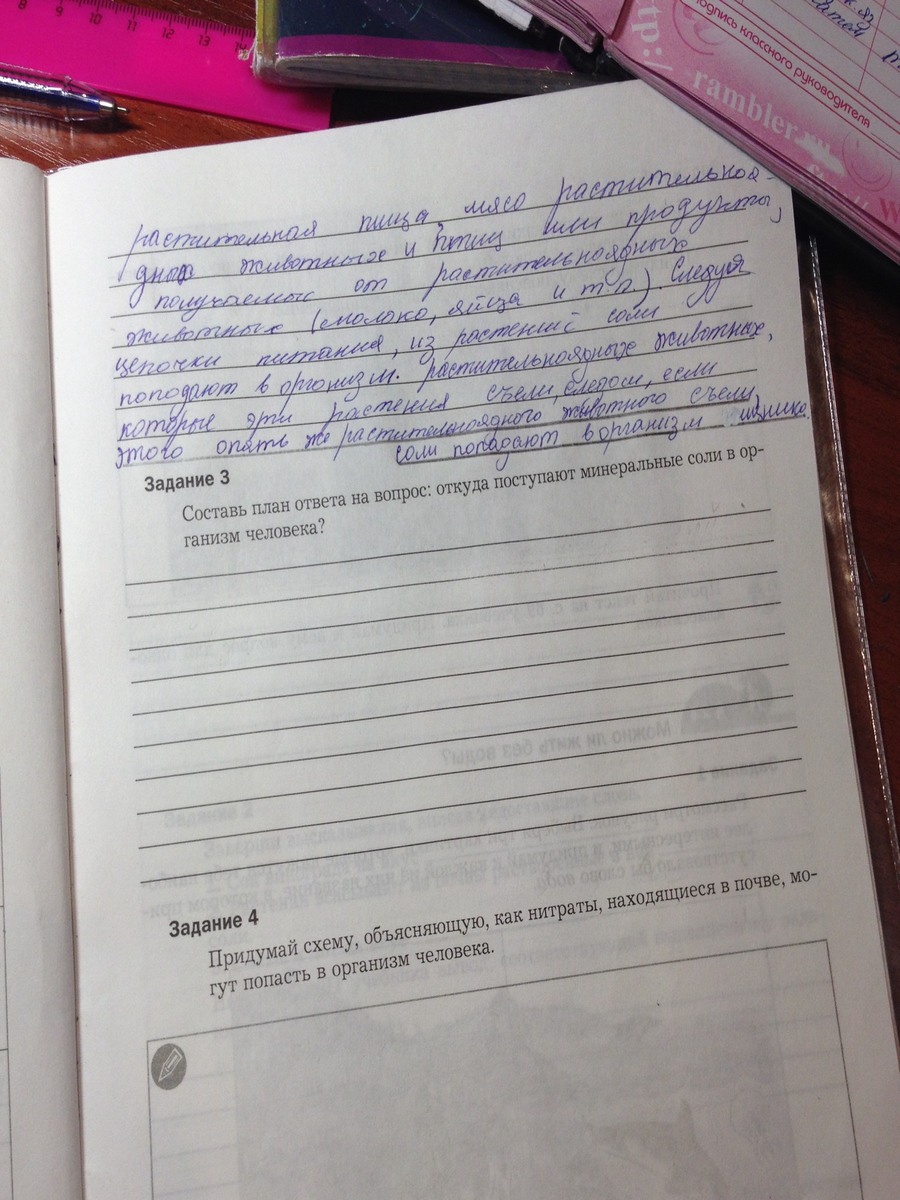 8 9 10 11 12 13 14
подпись классного руководителя
http://
rambler.ru
растительная пища, мясо растительноя-
дных животных и птиц или продукты,
получаемые от растительноядных
животных (молоко, яйца и т.п.). Следуя
цепочки питания, из растений соли
поподают в организм. растительноядных животных,
которые эти растения съели, следом, если
этого опять же растительноядного животного съели
соли поподают в организм
Задание 3
Составь план ответа на вопрос: откуда поступают минеральные соли в ор-
ганизм человека?
Можно ли жить без воды?
Задание 2
Задание 4
Придумай схему, объясняющую, как нитраты, находящиеся в почве, мо-
гут попасть в организм человека.